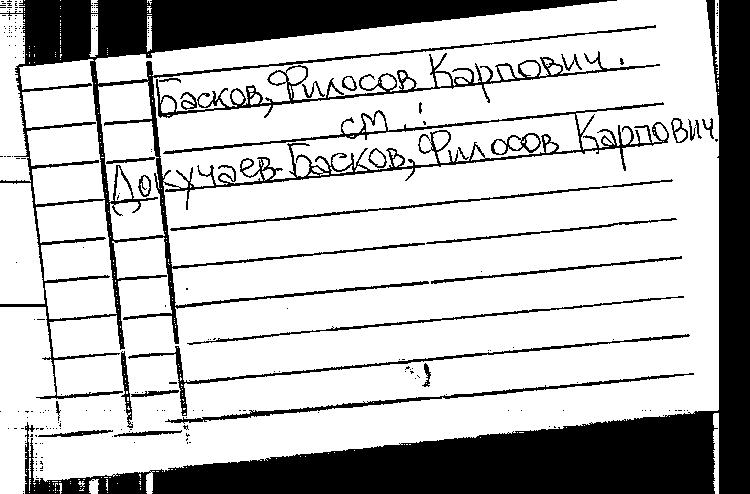 Басков, Филосов Карпович.
см.:
Докучаев-Басков, Филосов Карпович